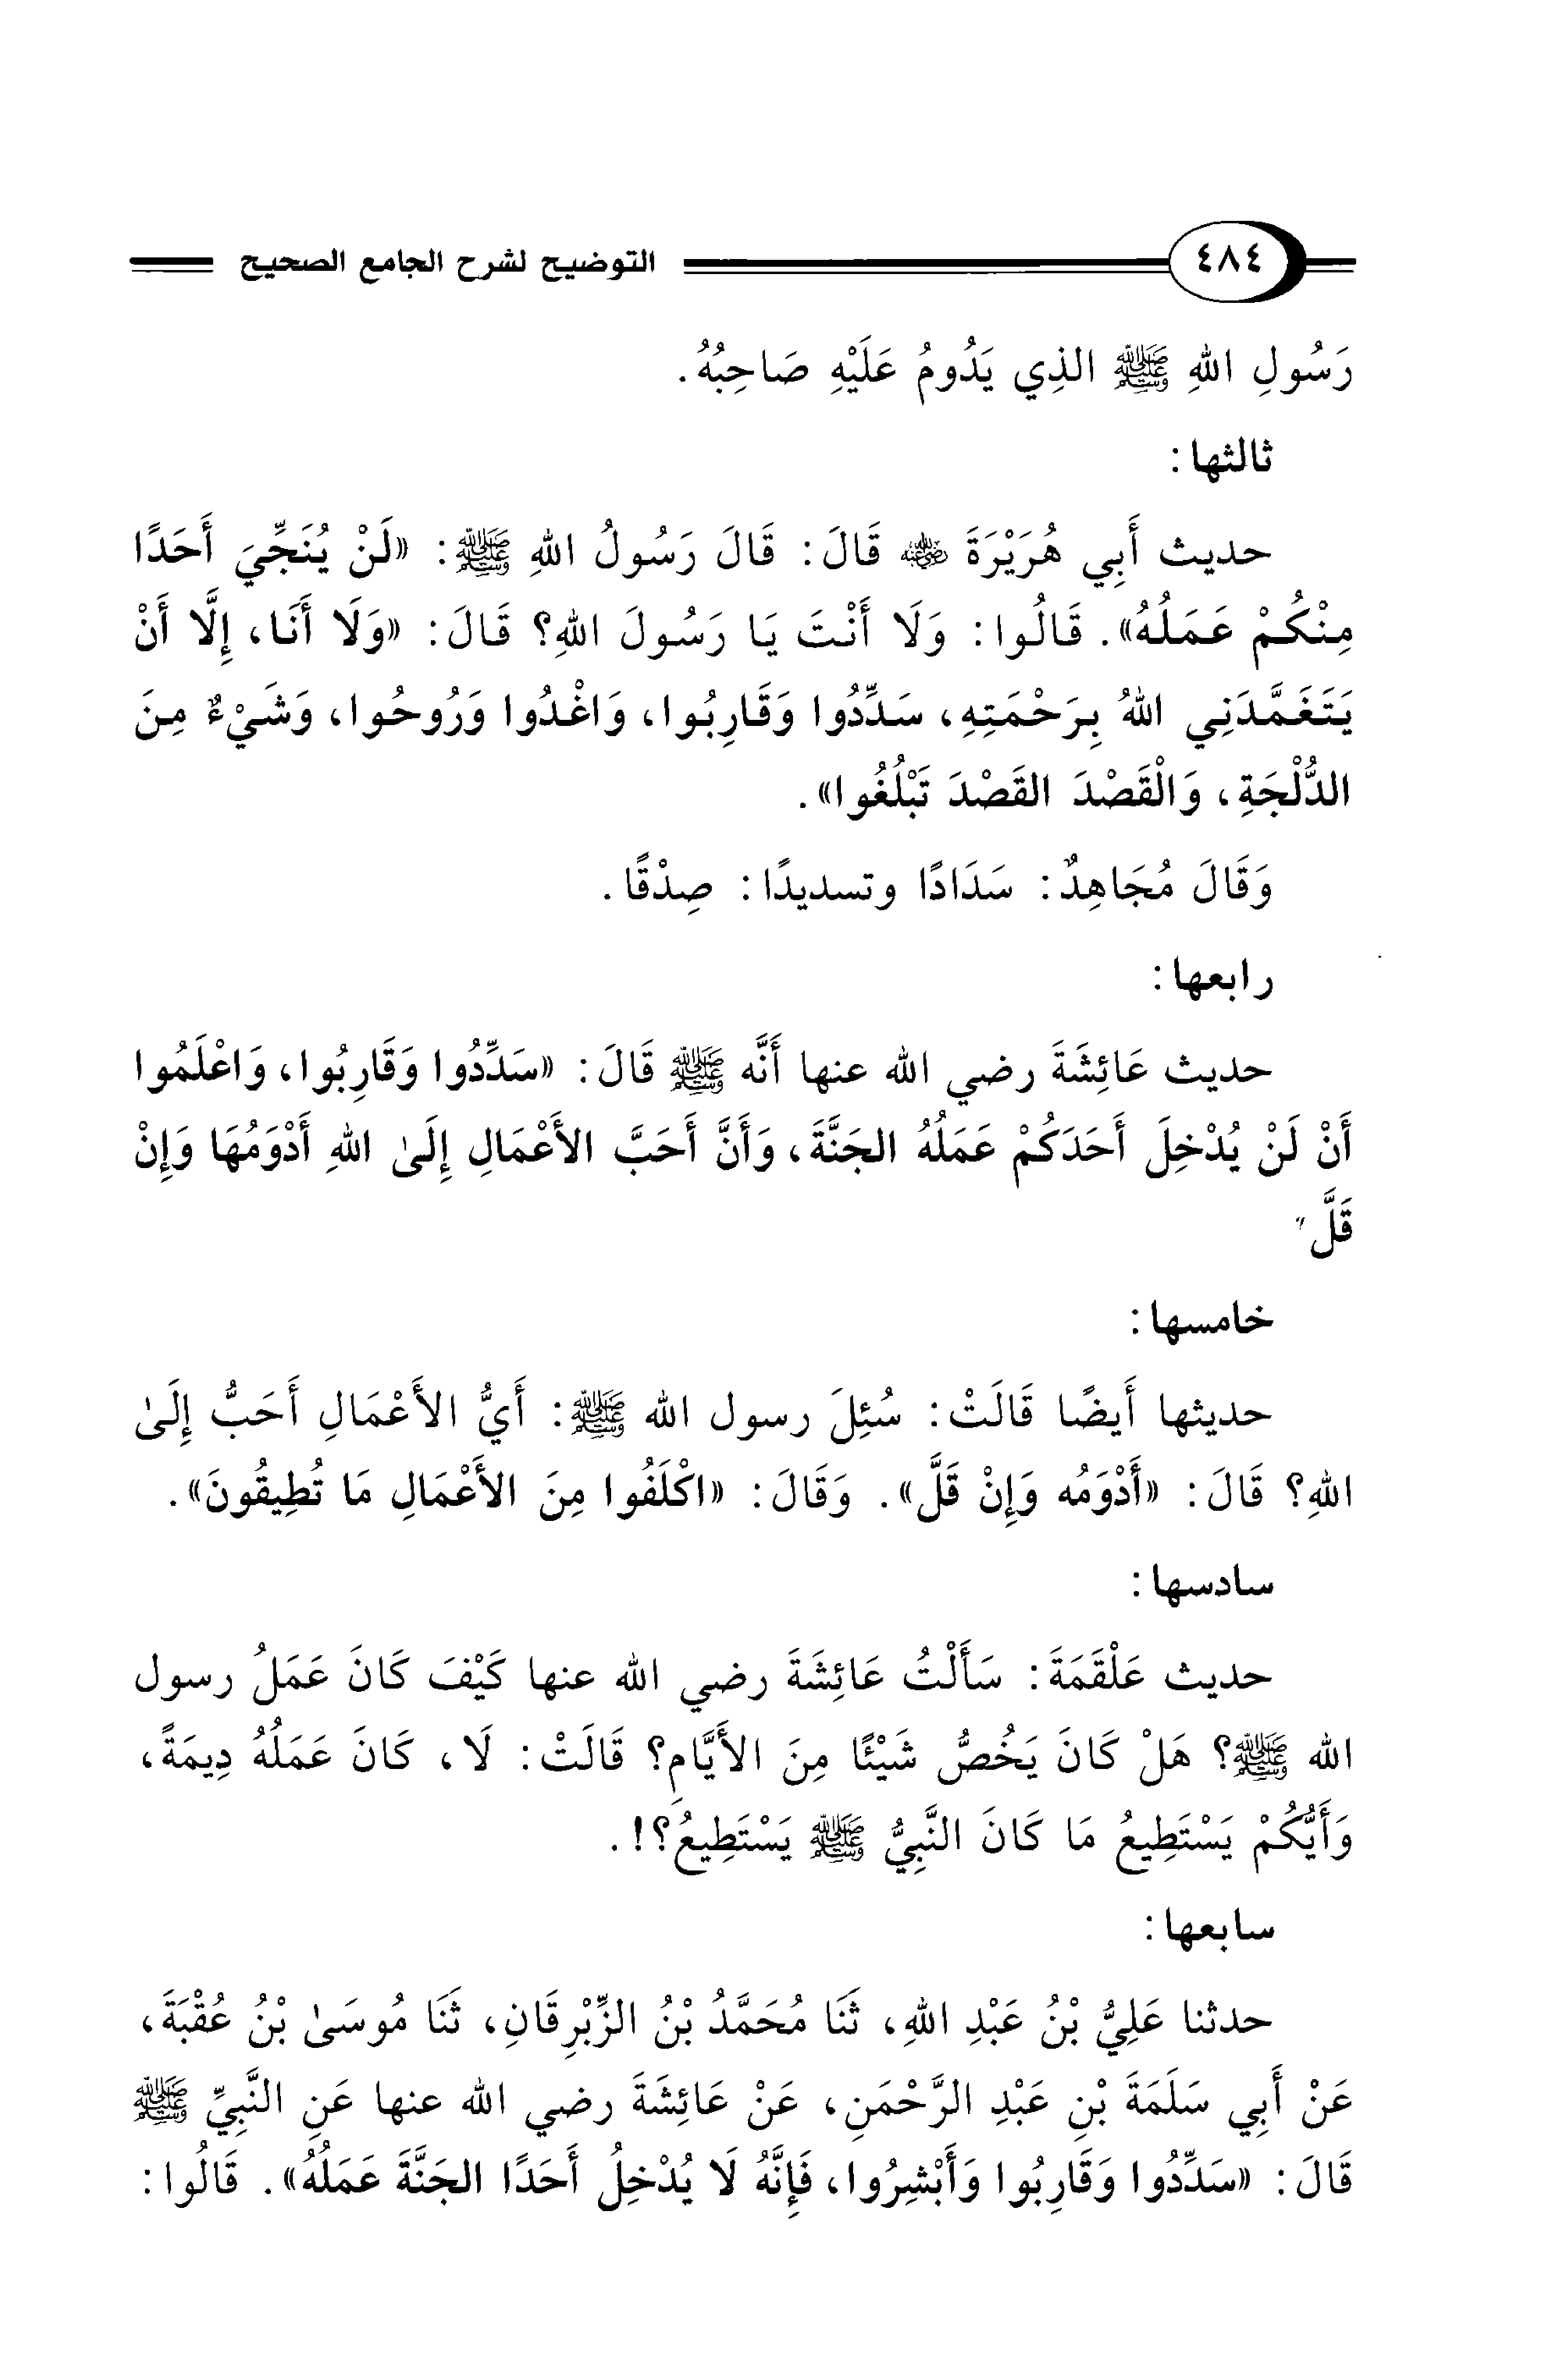 ٤٨٤ التوضيح لشرح الجامع الصحيح
رَسُولِ اللهِ ﷺ الذِي يَدُومُ عَلَيْهِ صَاحِبُهُ.
ثالثها:
حديث أَبِي هُرَيْرَةَ رضي الله عنه قَالَ: قَالَ رَسُولُ اللهِ ﷺ: «لَنْ يُنَجِّيَ أَحَدًا
مِنْكُمْ عَمَلُهُ». قَالُوا: وَلَا أَنْتَ يَا رَسُولَ اللهِ؟ قَالَ: «وَلَا أَنَا، إِلَّا أَنْ
يَتَغَمَّدَنِي اللهُ بِرَحْمَتِهِ، سَدِّدُوا وَقَارِبُوا، وَاغْدُوا وَرُوحُوا، وَشَيْءٌ مِنَ
الدُّلْجَةِ، وَالْقَصْدَ القَصْدَ تَبْلُغُوا».
وَقَالَ مُجَاهِدٌ: سَدَادًا وتسديدًا: صِدْقًا.
رابعها:
حديث عَائِشَةَ رضي الله عنها أَنَّه ﷺ قَالَ: «سَدِّدُوا وَقَارِبُوا، وَاعْلَمُوا
أَنْ لَنْ يُدْخِلَ أَحَدَكُمْ عَمَلُهُ الجَنَّةَ، وَأَنَّ أَحَبَّ الأَعْمَالِ إِلَىٰ اللهِ أَدْوَمُهَا وَإِنْ
قَلَّ»
خامسها:
حديثها أَيضًا قَالَتْ: سُئِلَ رسول الله ﷺ: أَيُّ الأَعْمَالِ أَحَبُّ إِلَىٰ
اللهِ؟ قَالَ: «أَدْوَمُه وَإِنْ قَلَّ». وَقَالَ: «اكْلَفُوا مِنَ الأَعْمَالِ مَا تُطِيقُونَ».
سادسها:
حديث عَلْقَمَةَ: سَأَلْتُ عَائِشَةَ رضي الله عنها كَيْفَ كَانَ عَمَلُ رسول
الله ﷺ؟ هَلْ كَانَ يَخُصُّ شَيْئًا مِنَ الأَيَّامِ؟ قَالَتْ: لَا، كَانَ عَمَلُهُ دِيمَةً،
وَأَيُّكُمْ يَسْتَطِيعُ مَا كَانَ النَّبِيُّ ﷺ يَسْتَطِيعُ؟!.
سابعها:
حدثنا عَلِيُّ بْنُ عَبْدِ اللهِ، ثَنَا مُحَمَّدُ بْنُ الزِّبْرِقَانِ، ثَنَا مُوسَىٰ بْنُ عُقْبَةَ،
عَنْ أَبِي سَلَمَةَ بْنِ عَبْدِ الرَّحْمَنِ، عَنْ عَائِشَةَ رضي الله عنها عَنِ النَّبِيِّ ﷺ
قَالَ: «سَدِّدُوا وَقَارِبُوا وَأَبْشِرُوا، فَإِنَّهُ لَا يُدْخِلُ أَحَدًا الجَنَّةَ عَمَلُهُ». قَالُوا: